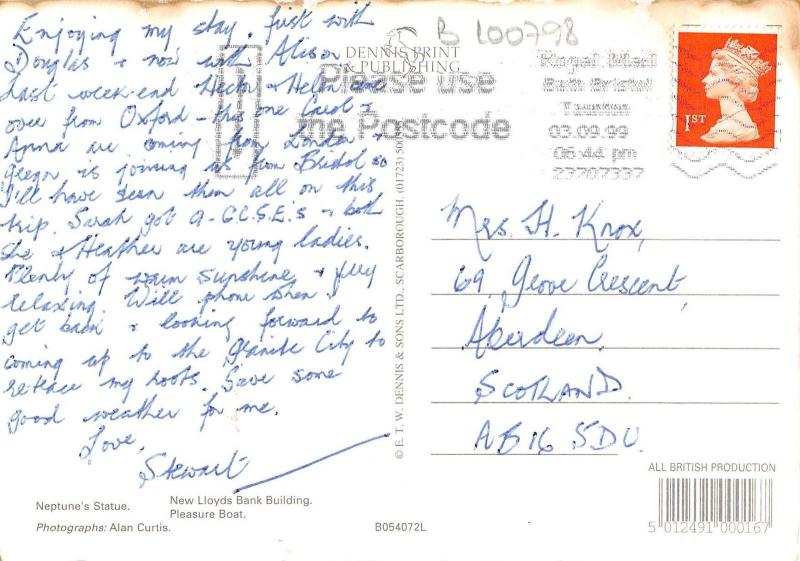 Enjoying my stay, first with
Douglas & now with Alison
Last week-end Hector & Helen came
over from Oxford - this one Carol &
Anna are coming from London &
Gregor is joining us from Bristol so
I'll have seen them all on this
trip. Sarah got 9 G.C.S.E's & both
she & Heather are young ladies.
Plenty of warm sunshine & very
relaxing. Will phone when I
get back & looking forward to
coming up to the Granite City to
retrace my roots. Save some
good weather for me.
Love,
Stewart
Neptune's Statue.
New Lloyds Bank Building.
Pleasure Boat.
Photographs: Alan Curtis.
B054072L
DENNIS PRINT
& PUBLISHING
© E. T. W. DENNIS & SONS LTD., SCARBOROUGH. (01723)
B L00798
Please use
me Postcode
Royal Mail
Bath Bristol
Taunton
03.09.99
06:44 pm
23707337
1ST
Mrs. H. Knox,
69, Grove Crescent,
Aberdeen.
SCOTLAND.
AB16 5DU.
ALL BRITISH PRODUCTION
5 012491 000167